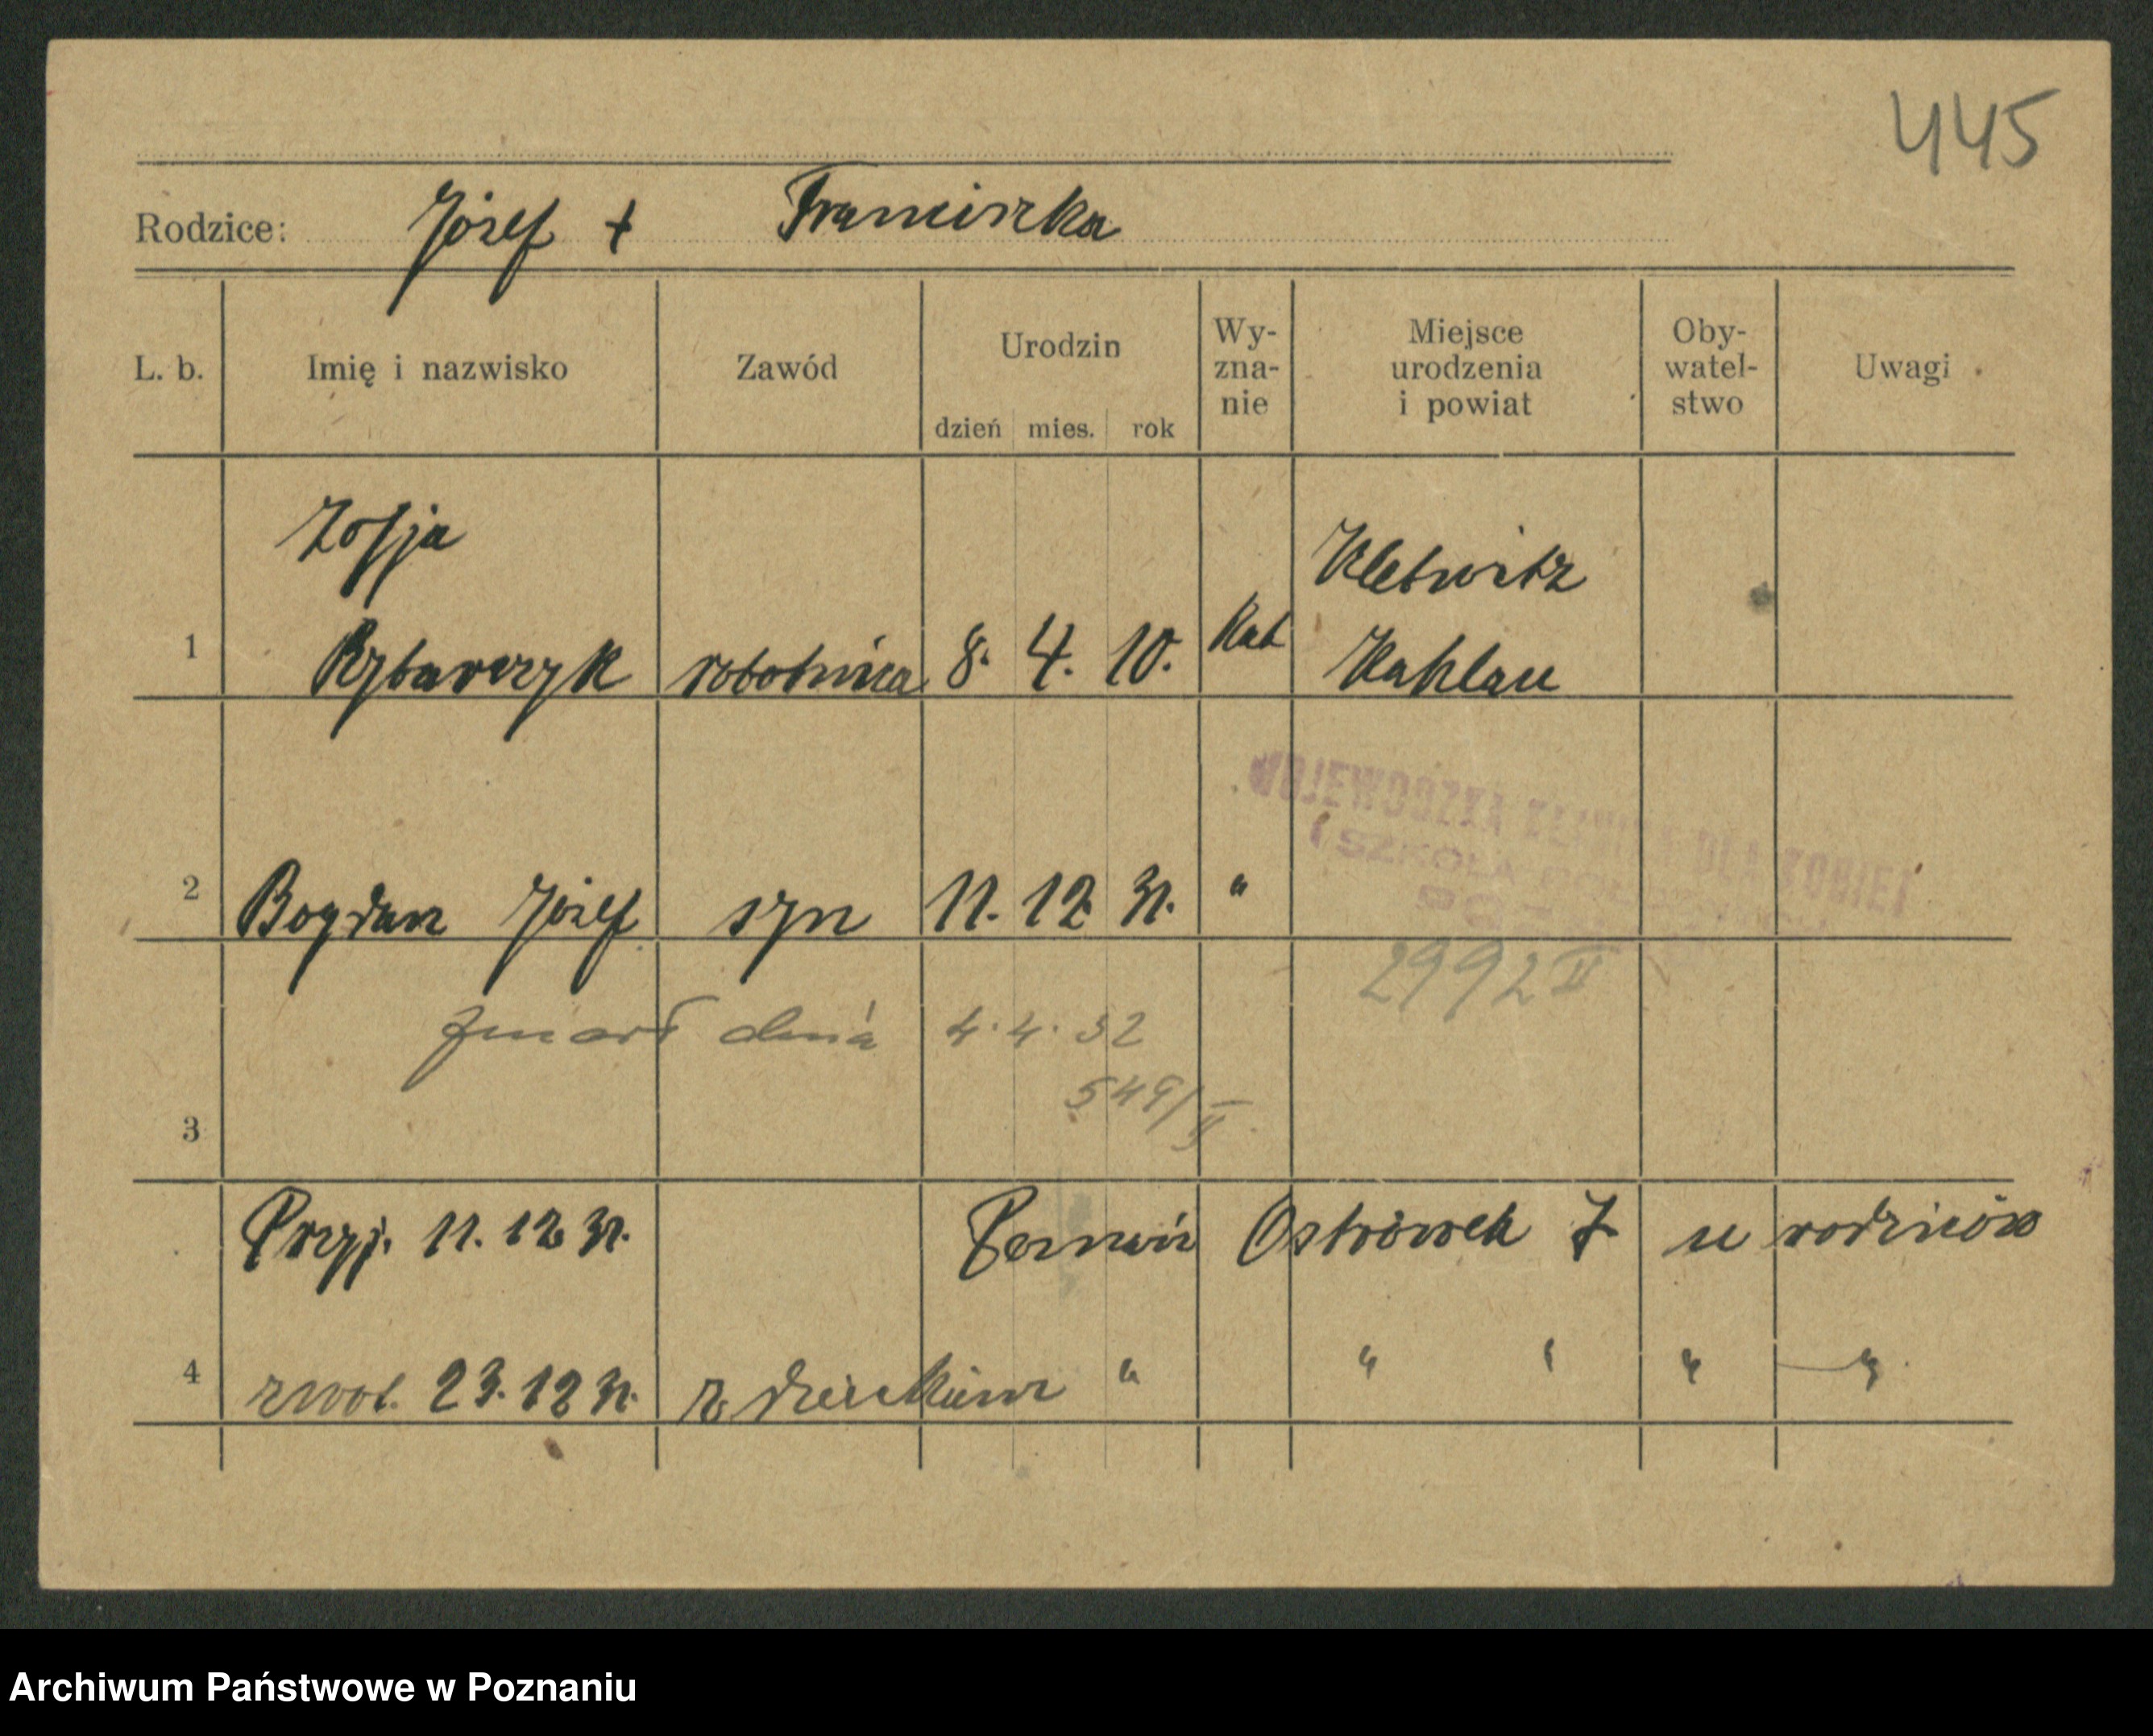 445
Rodzice: Józef + Franciszka
L. b. Imię i nazwisko Zawód Urodzin dzień mies. rok Wy-zna-nie Miejsce urodzenia i powiat Oby-watel-stwo Uwagi
Zofja
Kletwitz
1 Rybarczyk robotnica 8. 4. 10. Kat Kahlau
WOJEWÓDZKA KLINIKA DLA KOBIET
(SZKOŁA
2 Bogdan Józef syn 11. 12. 31. "
2992 II
zmarł dnia 4. 4. 32
549/II
3
Przyj. 11. 12. 31. Poznań Ostrówek 7 u rodziców
4 zwol. 23. 12 31. z dzieckiem " " " " — "
Archiwum Państwowe w Poznaniu